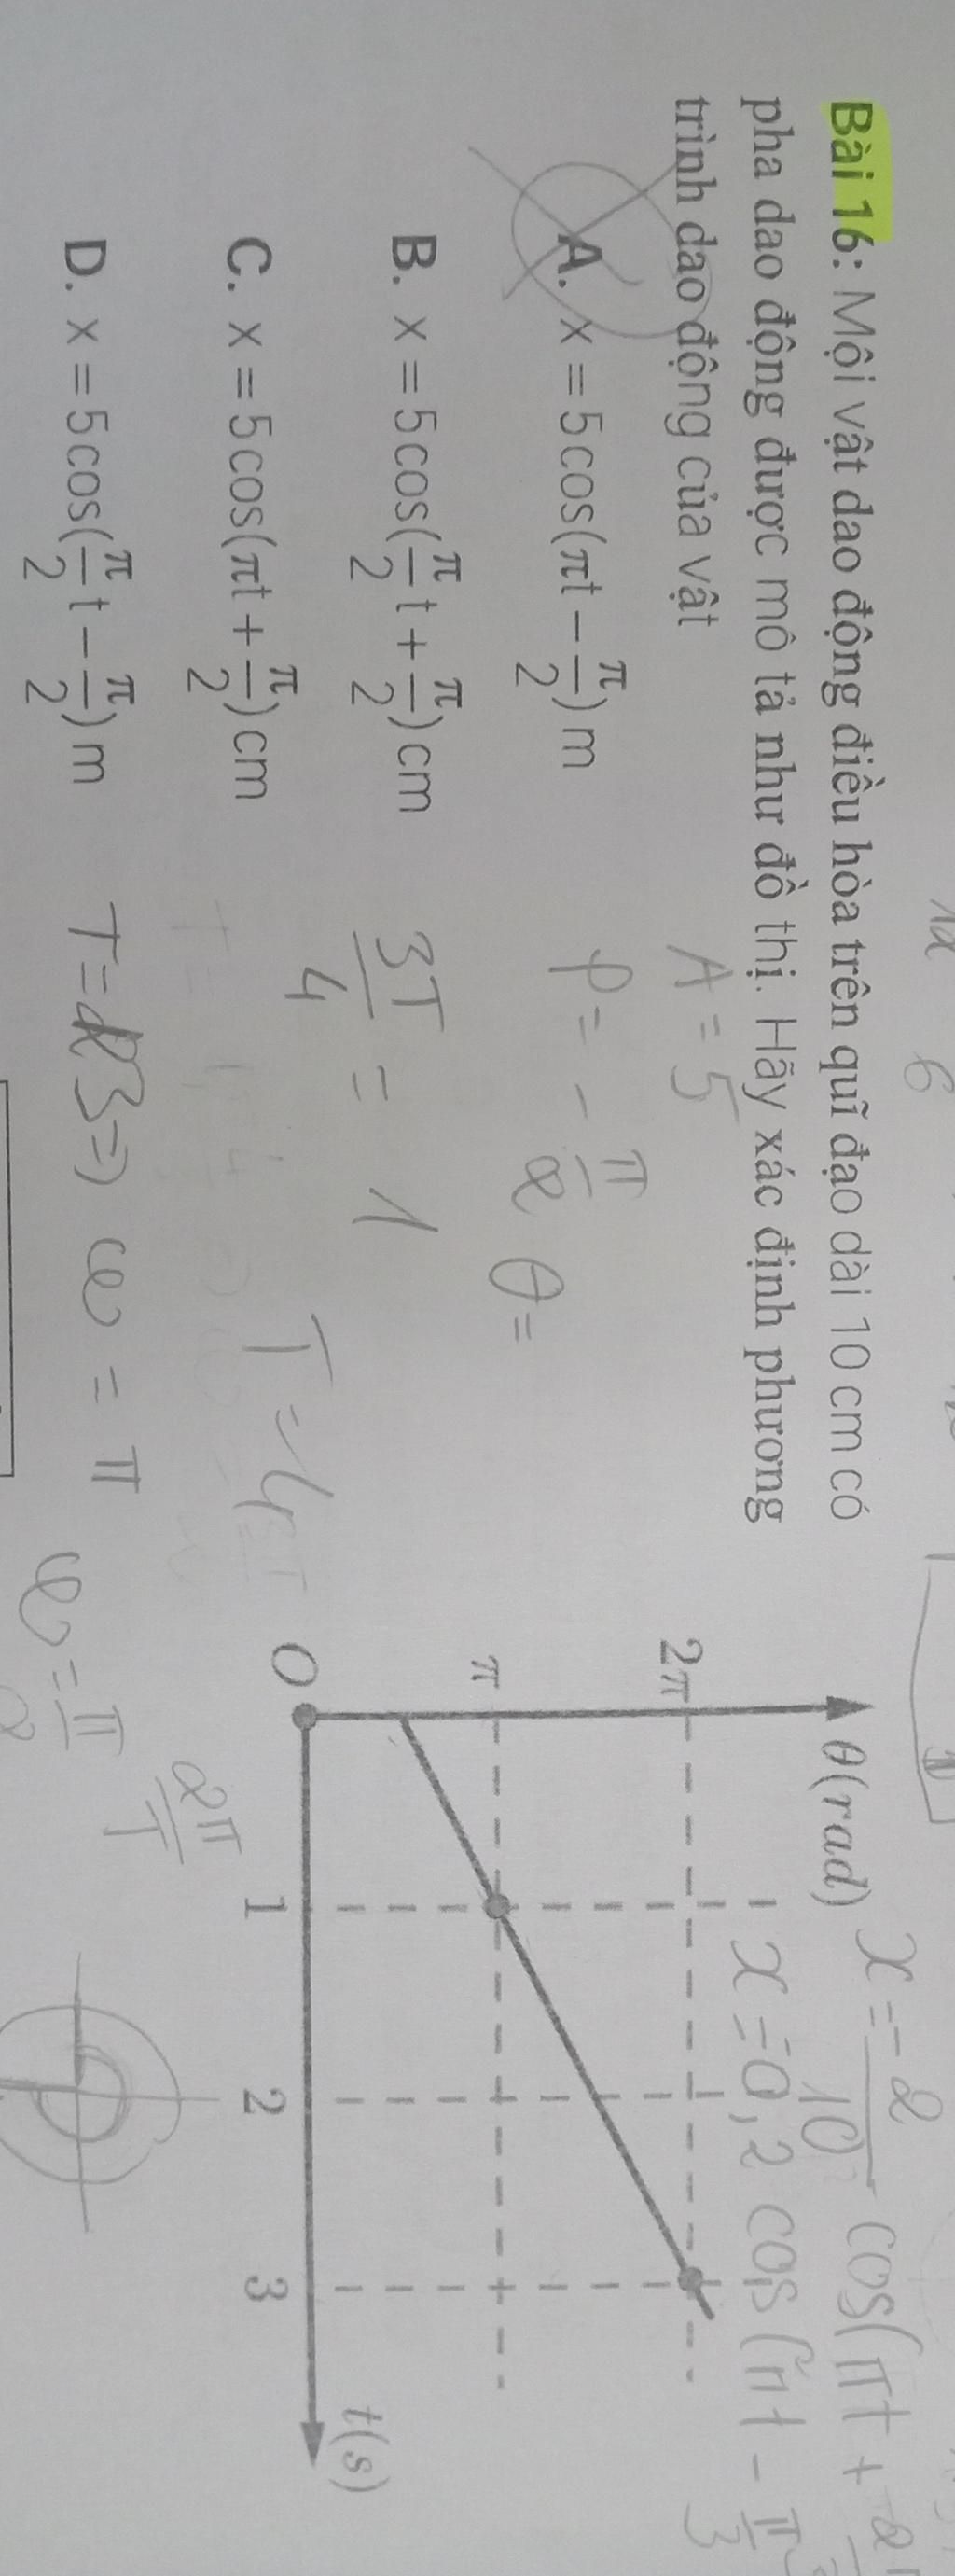 Bài 16: Mội vật dao động điều hòa trên quĩ đạo dài 10 cm có
pha dao động được mô tả như đồ thị. Hãy xác định phương
trình dao động của vật
A. x = 5cos(πt − π/2) m
B. x = 5cos(π/2 t + π/2) cm
C. x = 5cos(πt + π/2) cm
D. x = 5cos(π/2 t − π/2) m
A = 5
φ = − π/2
θ =
3T/4 = 1
T = 4
T = 3 => ω = π
ω = π/2
2π/T
θ(rad)
2π
π
O
1
2
3
t(s)
x = −2/10 cos(πt +
x = 0,2 cos(πt − π/3
6